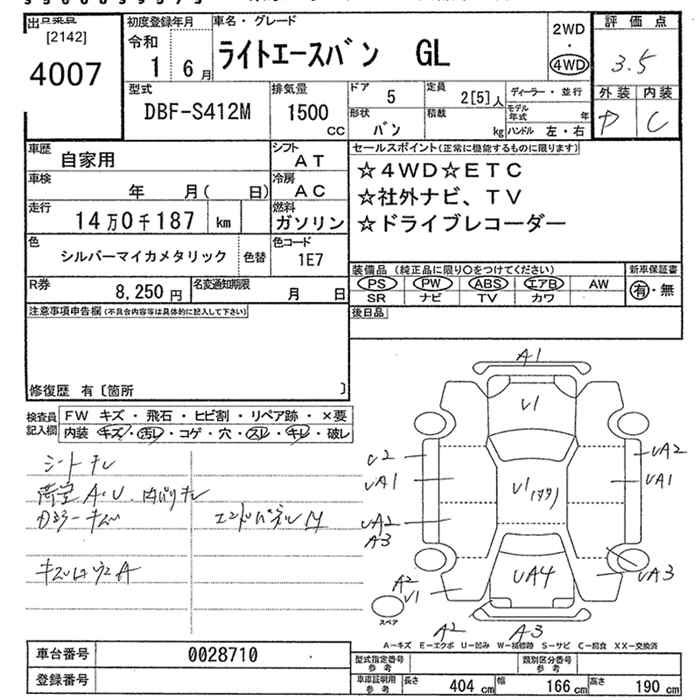 出品業者
[2142]
4007
初度登録年月
令和
1 6月
車名・グレード
ライトエースバン GL
2WD
・
4WD
評価点
3.5
外装 内装
C
型式
DBF-S412M
排気量
1500
CC
ドア 5
形状 バン
定員 2[5]人
積載 kg
ディーラー・並行
モデル年式 年
ハンドル 左・右
車歴 自家用
車検 年 月( 日)
走行 14万0千187 km
シフト AT
冷房 AC
燃料 ガソリン
色 シルバーマイカメタリック 色替
色コード 1E7
R券 8,250円
名変通知期限 月 日
セールスポイント(正常に機能するものに限ります)
☆4WD☆ETC
☆社外ナビ、TV
☆ドライブレコーダー
装備品 (純正品に限り○をつけてください)
PS PW ABS エアB AW
SR ナビ TV カワ
新車保証書
有・無
後日品
注意事項申告欄(不具合内容等は具体的に記入して下さい)
修復歴 有〔箇所 〕
検査員記入欄
FW キズ・飛石・ヒビ割・リペア跡・×要
内装 キズ・汚レ・コゲ・穴・スレ・キレ・破レ
シートキレ
荷室A.U. 内バリキレ
エンドパネルM
A1
V1
U2
UA1
UA2
A3
UA2
UA1
V1
UA4
UA3
A2
V1
A2
A3
スペア
A－キズ E－エクボ U－凹み W－補修跡 S－サビ C－腐食 XX－交換済
車台番号 0028710
登録番号
型式指定番号 参考
類別区分番号 参考
車庫証明用 参考
長さ 404 cm
幅 166 cm
高さ 190 cm